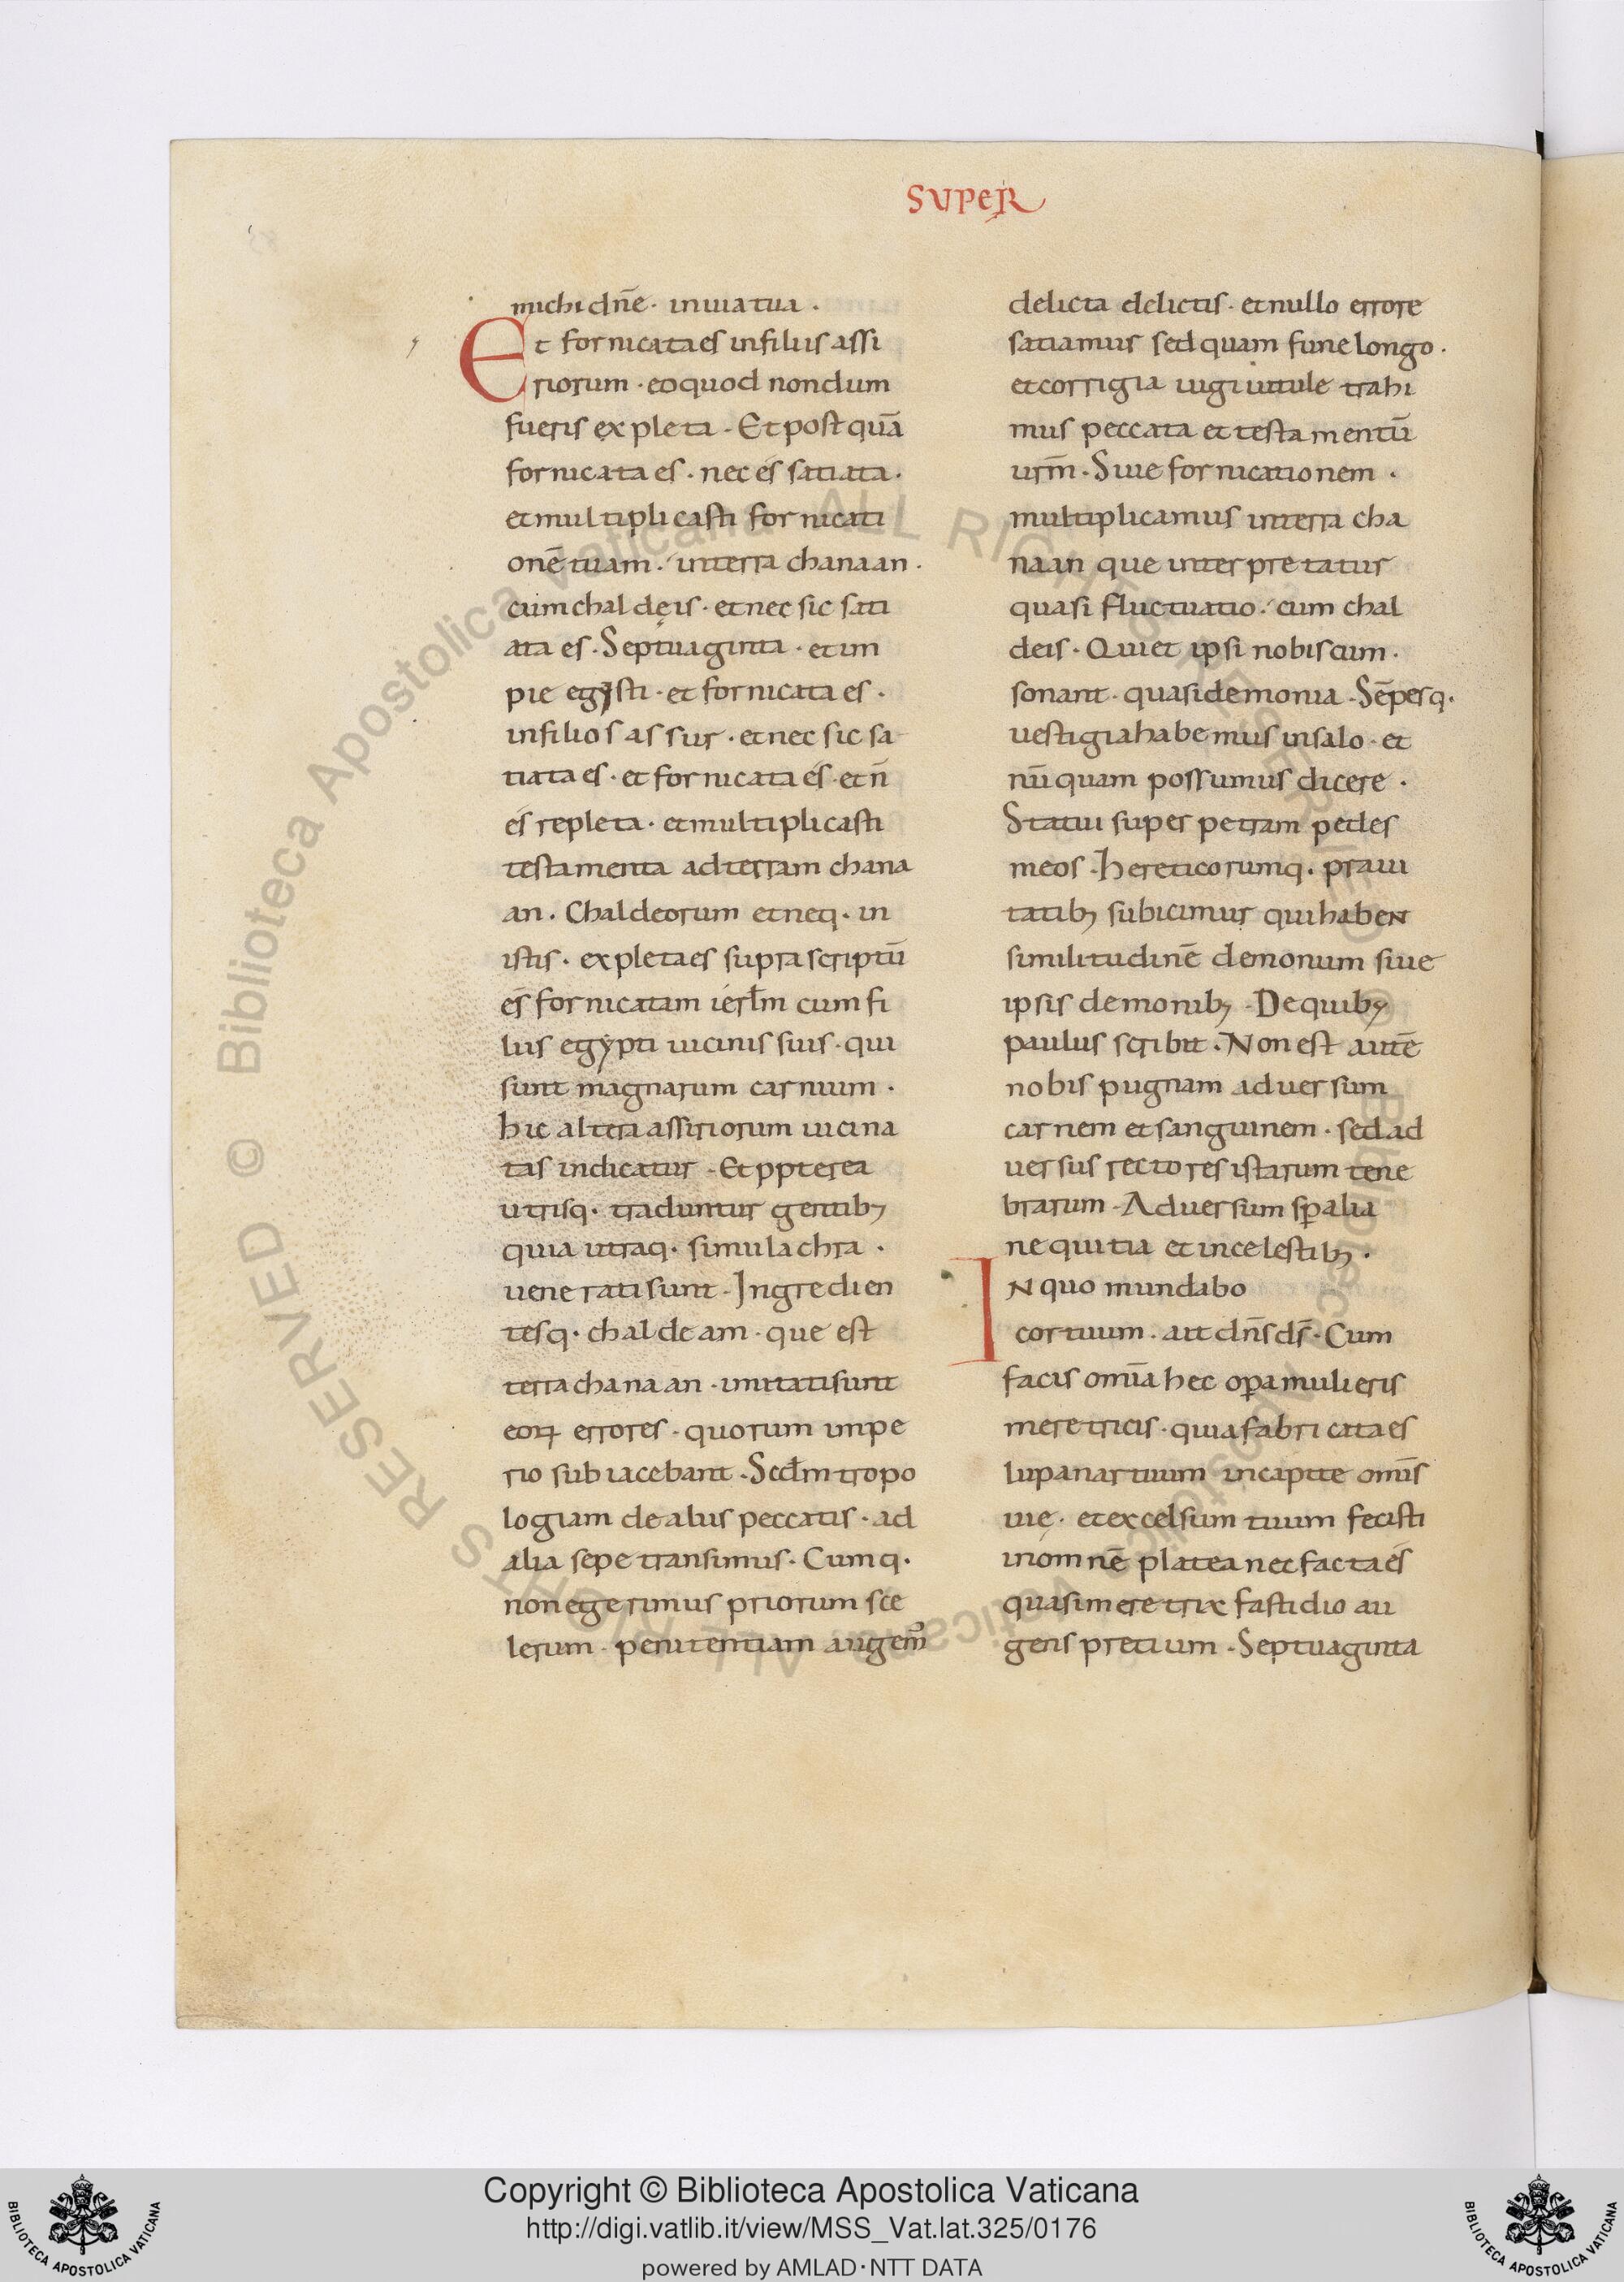 SUPER
michi dn̄e · in uia tua ·
Et fornicata es in filiis assi
riorum · eo quod nondum
fueris expleta · Et postquā
fornicata es · nec és satiata ·
et multiplicasti fornicati
onē tuam · in terra chanaan ·
cum chaldęis · et nec sic sati
ata es · Septuaginta · et im
pie egisti · et fornicata es ·
in filios assur · et nec sic sa
tiata es · et fornicata és · et n̄
és repleta · et multiplicasti
testamenta ad terram chana
an · Chaldeorum et neq· in
istis · expleta es supra scriptū
és fornicatam ierłm cum fi
liis egẏpti uicinis suis · qui
sunt magnarum carnium ·
hic altera assiriorum uicina
tas indicatur · Et ppterea
utrisq· traduntur gentibꝫ
quia utraq· simulachra ·
uenerati sunt · Ingredien
tesq· chaldeam · que est
terra chanaan · imitati sunt
eoꝝ errores · quorum impe
rio subiacebant · Scdm̄ tropo
logiam de aliis peccatis · ad
alia sepe transimus · Cumq·
non egerimus priorum sce
lerum · penitentiam augem᷒
delicta delictis · et nullo errore
satiamur sed quam fune longo ·
et corrigia iugi uitule trahi
mus peccata et testamentū
urm̄ · Siue fornicationem ·
multiplicamus in terra cha
naan que interpretatur
quasi fluctuatio · cum chal
deis · Qui et ipsi nobiscum ·
sonant · quasi demonia · Sēperq·
uestigia habemus in salo · et
nūquam possumus dicere ·
Statui super petram pedes
meos · hereticorumq· praui
tatibꝫ subicimur qui habeN
similitudinē demonum siue
ipsis demonibꝫ · De quibꝫ
paulus scribit · Non est autē
nobis pugnam aduersum
carnem et sanguinem · sed ad
uersus rectores istarum tene
brarum · Aduersum sp̄alia
nequitia et in celestibꝫ ·
IN quo mundabo
cor tuum · ait dn̄s ds̄ · Cum
facis omīa hec opa mulieris
meretricis · quia fabricata es
lupanar tuum in capite omīs
uię · et excelsum tuum fecisti
in omnē platea nec facta és
quasi meretrix fastidio au
gens pretium · Septuaginta
Copyright © Biblioteca Apostolica Vaticana
http://digi.vatlib.it/view/MSS_Vat.lat.325/0176
powered by AMLAD·NTT DATA
BIBLIOTECA APOSTOLICA VATICANA
BIBLIOTECA APOSTOLICA VATICANA
© Biblioteca Apostolica Vaticana ALL RIGHTS RESERVED © Biblioteca Apostolica Vaticana ALL RIGHTS RESERVED